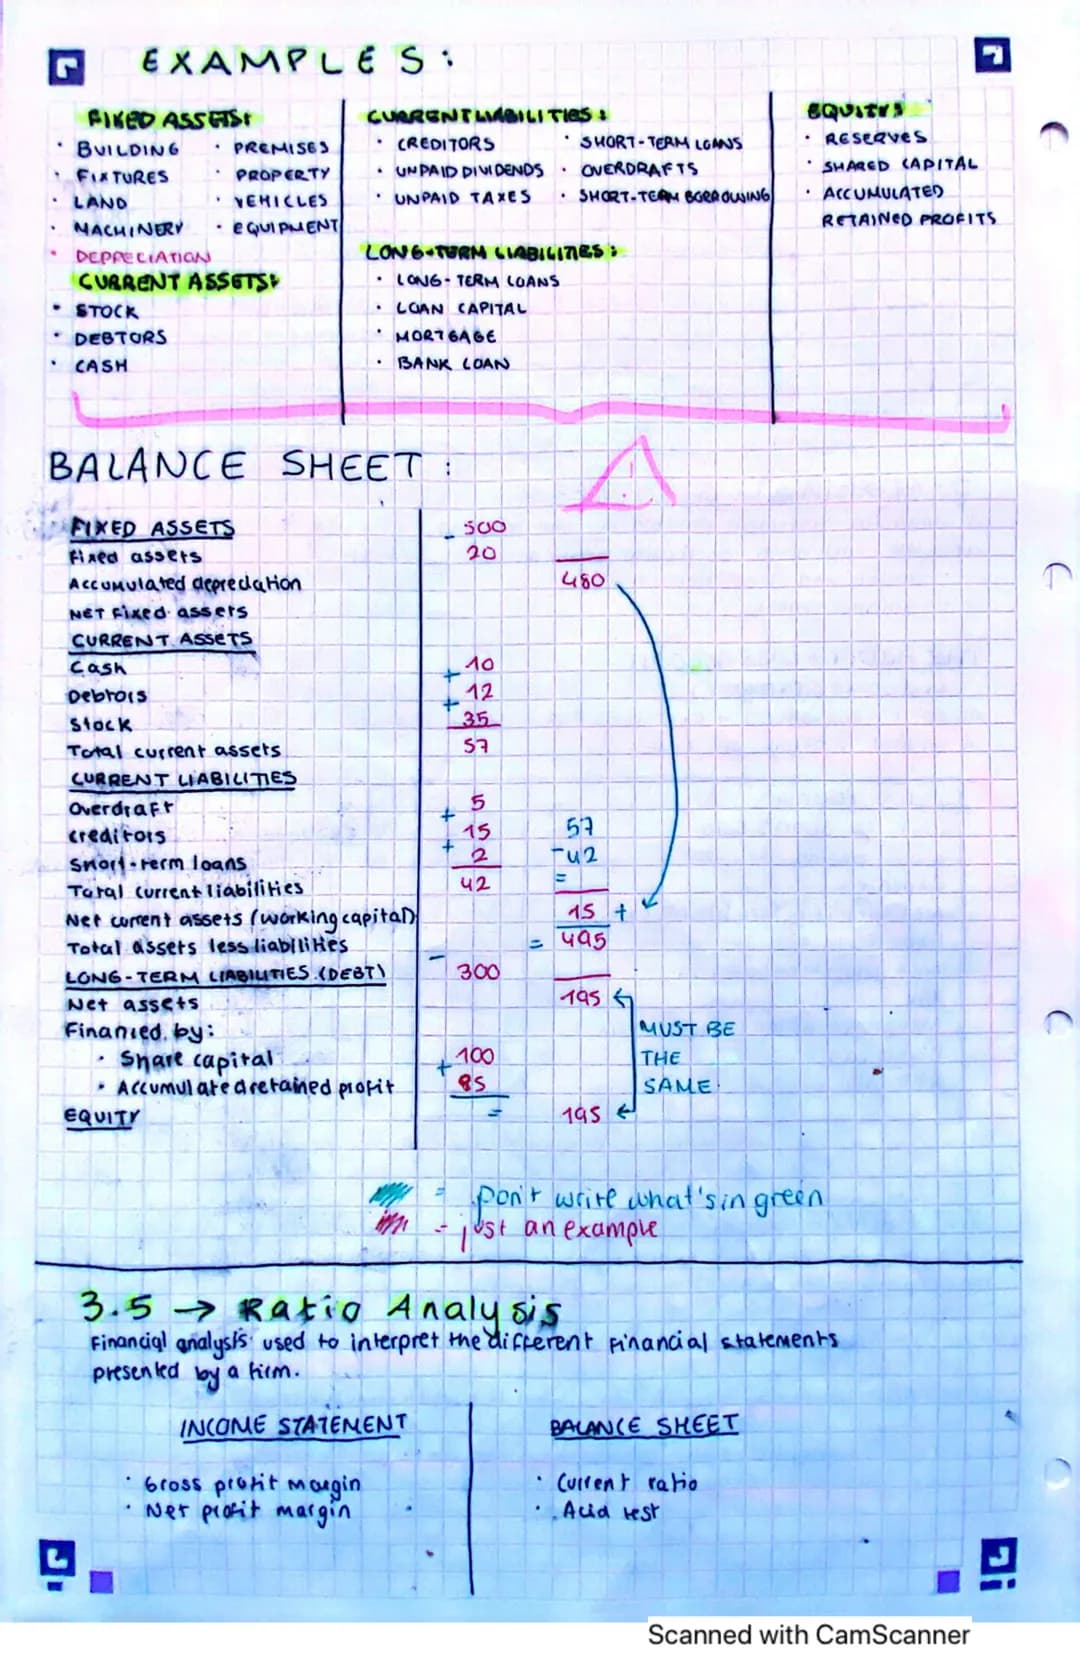 EXAMPLES:
FIXED ASSETS:
· BUILDING · PREMISES
· FIXTURES · PROPERTY
· LAND · VEHICLES
· MACHINERY · EQUIPMENT
· DEPRECIATION
CURRENT ASSETS:
· STOCK
· DEBTORS
· CASH
CURRENT LIABILITIES:
· CREDITORS · SHORT-TERM LOANS
· UNPAID DIVIDENDS · OVERDRAFTS
· UNPAID TAXES · SHORT-TERM BORROWING
LONG-TERM LIABILITIES:
· LONG-TERM LOANS
· LOAN CAPITAL
· MORTGAGE
· BANK LOAN
EQUITY:
· RESERVES
· SHARED CAPITAL
· ACCUMULATED
RETAINED PROFITS
BALANCE SHEET:
!
FIXED ASSETS 500
Fixed assets - 20
Accumulated depreciation 480
NET Fixed assets
CURRENT ASSETS
Cash 10
Debtors + 12
Stock + 35
Total current assets 57
CURRENT LIABILITIES
Overdraft 5
creditors + 15 57
Short-term loans + 2 -42
Total current liabilities 42 =
Net current assets (working capital) 15 +
Total assets less liabilities = 495
LONG-TERM LIABILITIES (DEBT) - 300
Net assets 195
Financed by: MUST BE
· Share capital 100 THE
· Accumulated retained profit + 85 SAME
EQUITY = 195
= Don't write what's in green
- just an example
3.5 → Ratio Analysis
Financial analysis used to interpret the different financial statements
presented by a firm.
INCOME STATEMENT
· Gross profit margin
· Net profit margin
BALANCE SHEET
· Current ratio
· Acid test
Scanned with CamScanner